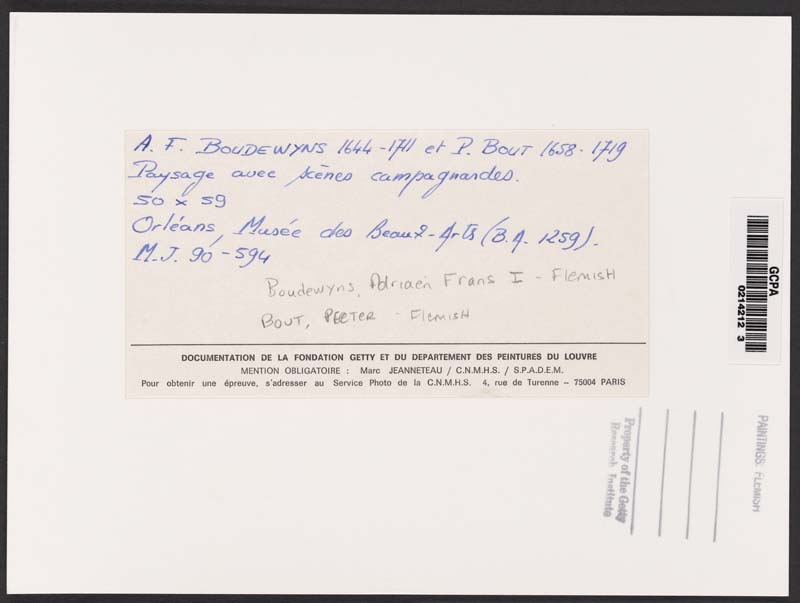 A. F. BOUDEWYNS 1644-1711 et P. BOUT 1658-1719
Paysage avec scènes campagnardes.
50 x 59
Orléans, Musée des Beaux-Arts (B.A. 1259).
M.J. 90-594
Boudewyns, Adriaen Frans I - Flemish
BOUT, PEETER - Flemish
DOCUMENTATION DE LA FONDATION GETTY ET DU DEPARTEMENT DES PEINTURES DU LOUVRE
MENTION OBLIGATOIRE : Marc JEANNETEAU / C.N.M.H.S. / S.P.A.D.E.M.
Pour obtenir une épreuve, s'adresser au Service Photo de la C.N.M.H.S. 4, rue de Turenne – 75004 PARIS
GCPA
0214212 3
Property of the Getty
Research Institute
PAINTINGS: FLEMISH